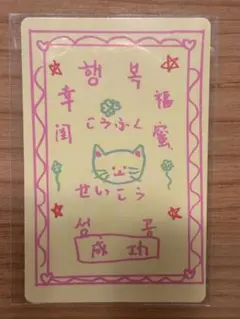 행 복
幸 福
こうふく
闺 蜜
せいこう
성 공
成功